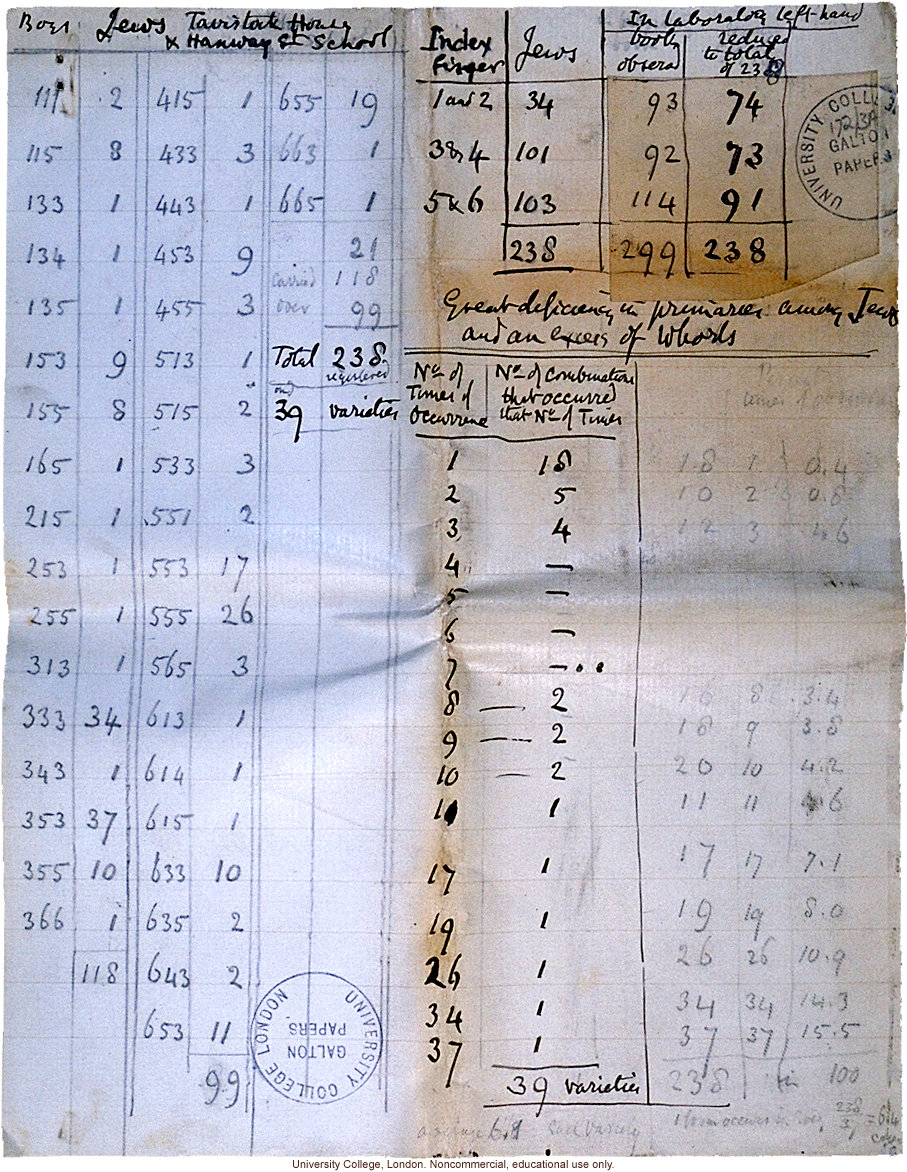 Boys Jews Tavistock House
& Hanway St School
111 2 415 1 655 19
115 8 433 3 663 1
133 1 443 1 665 1
134 1 453 9 21
carried 118
135 1 455 3 over 99
153 9 513 1 Total 238
registered
and
155 8 515 2 39 varieties
165 1 533 3
215 1 551 2
253 1 553 17
255 1 555 26
313 1 565 3
333 34 613 1
343 1 614 1
353 37 615 1
355 10 633 10
366 1 635 2
118 643 2
653 11
99
UNIVERSITY COLLEGE LONDON
GALTON
PAPERS
In laboratory left-hand
Index Jews
finger
observed reduced
to total
of 238
1 and 2 34 93 74
3 & 4 101 92 73
5 & 6 103 114 91
238 299 238
UNIVERSITY COLL
172/3A
GALTON
PAPERS
Great deficiency in primaries among Jews
and an excess of Whorls
No. of No. of Combinations
Times of that occurred
Occurrence that No. of Times
1 18 18 1 0.4
2 5 10 2 0.8
3 4 12 3
4 —
5 —
6 —
7 —
8 — 2 16 8 3.4
9 — 2 18 9 3.8
10 — 2 20 10 4.2
11 1 11 11 4.6
17 1 17 17 7.1
19 1 19 19 8.0
26 1 26 26 10.9
34 1 34 34 14.3
37 1 37 37 15.5
39 varieties 238 100
University College, London. Noncommercial, educational use only.